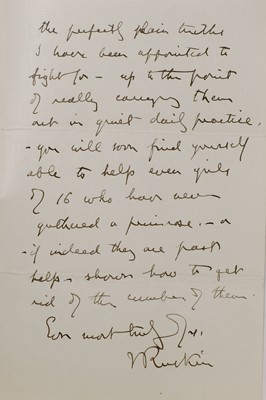 the perfectly plain truths
I have been appointed to
fight for - up to the point
of really carrying them
out in quiet daily practice,
- you will soon find yourself
able to help even girls
of 16 who have never
gathered a primrose. - or
- if indeed they are past
help - shown how to get
rid of the number of them.
Ever most truly Yrs.
JRuskin